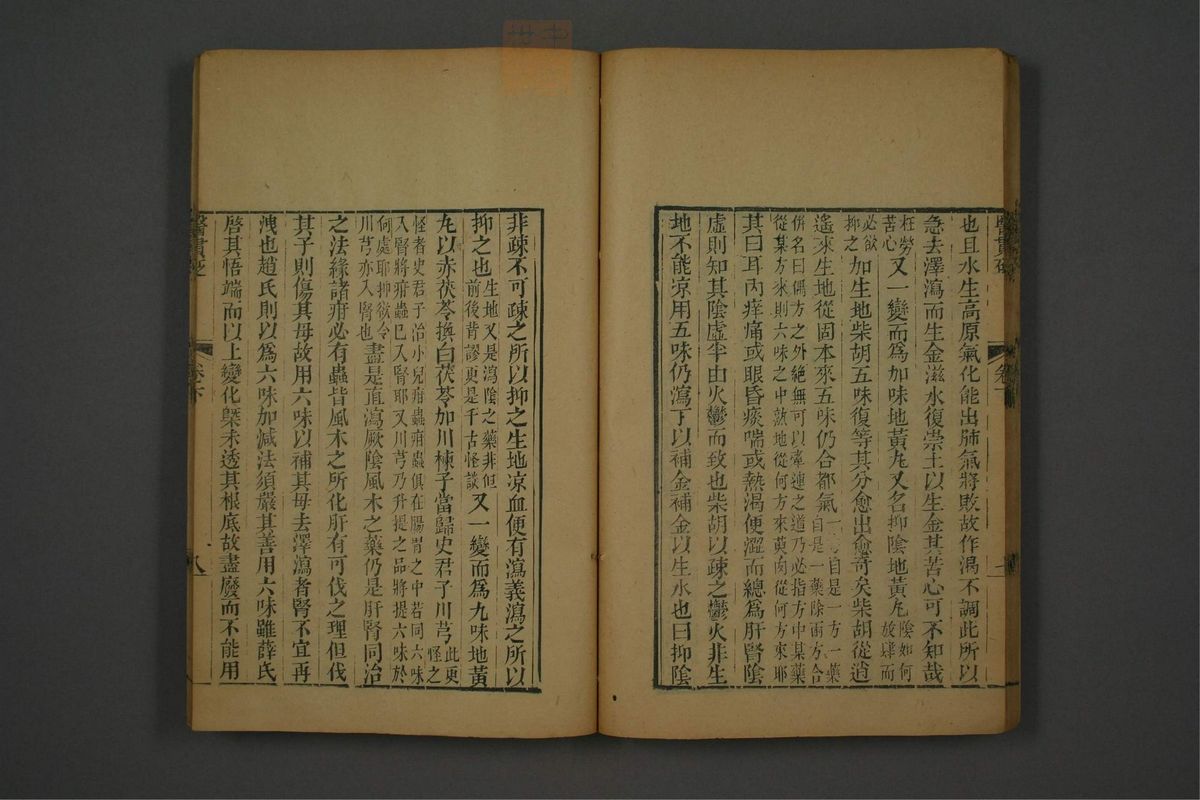 也且水生高原氣化能出肺氣將敗故作渴不調此所以
急去澤瀉而生金滋水復崇土以生金其苦心可不知哉
枉勞苦心又一變而爲加味地黃丸又名抑陰地黃丸陰如何放肆而
必欲抑之加生地柴胡五味復等其分愈出愈奇矣柴胡從逍
遙來生地從固本來五味仍合都氣一自是一方一藥自是一藥除兩方合
倂名曰偶方之外絶無可以牽連之道乃必指方中某藥從某方來則六味之中熟地從何方來黃肉從何方來耶
其曰耳內痒痛或眼昏痰喘或熱渴便澀而總爲肝腎陰
虛則知其陰虛半由火鬱而致也柴胡以疎之鬱火非生
地不能凉用五味仍瀉丁以補金補金以生水也曰抑陰
非疎不可疎之所以抑之生地凉血便有瀉義瀉之所以
抑之也生地又是瀉陰之藥非但前後背謬更是千古怪談又一變而爲九味地黃
丸以赤茯苓換白茯苓加川楝子當歸史君子川芎此更怪之
怪者史君子治小兒疳蟲疳蟲俱在腸胃之中若同六味入腎將疳蟲已入腎耶又川芎乃升提之品將提六味於
何處耶抑欲令川芎亦入腎也盡是直瀉厥陰風木之藥仍是肝腎同治
之法緣諸疳必有蟲皆風木之所化肝有可伐之理但伐
其子則傷其母故用六味以補其母去澤瀉者腎不宜再
洩也趙氏則以爲六味加減法須嚴其善用六味雖薛氏
啓其悟端而以上變化槩未透其根底故盡廢而不能用
醫貫砭
卷下
七
醫貫砭
卷下
八